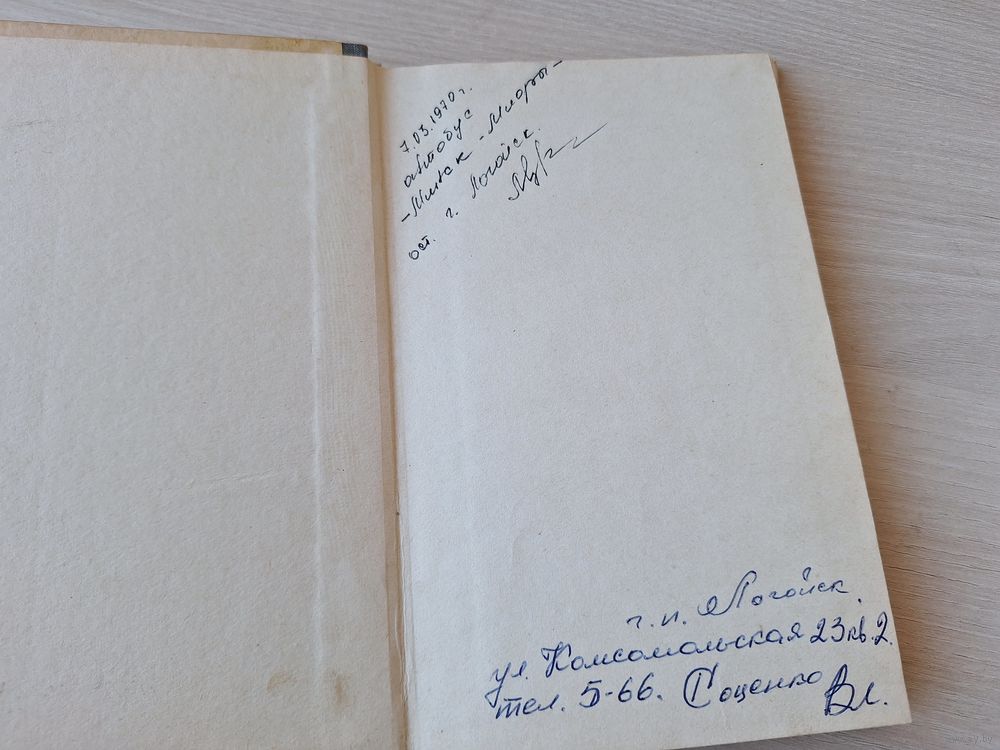 7.03.1970 г.
автобус
-Минск - Миоры-
ост. г. Логойск.
г.п. Логойск.
ул. Комсомольская 23 кв. 2.
тел. 5-66. Соценко Вл.